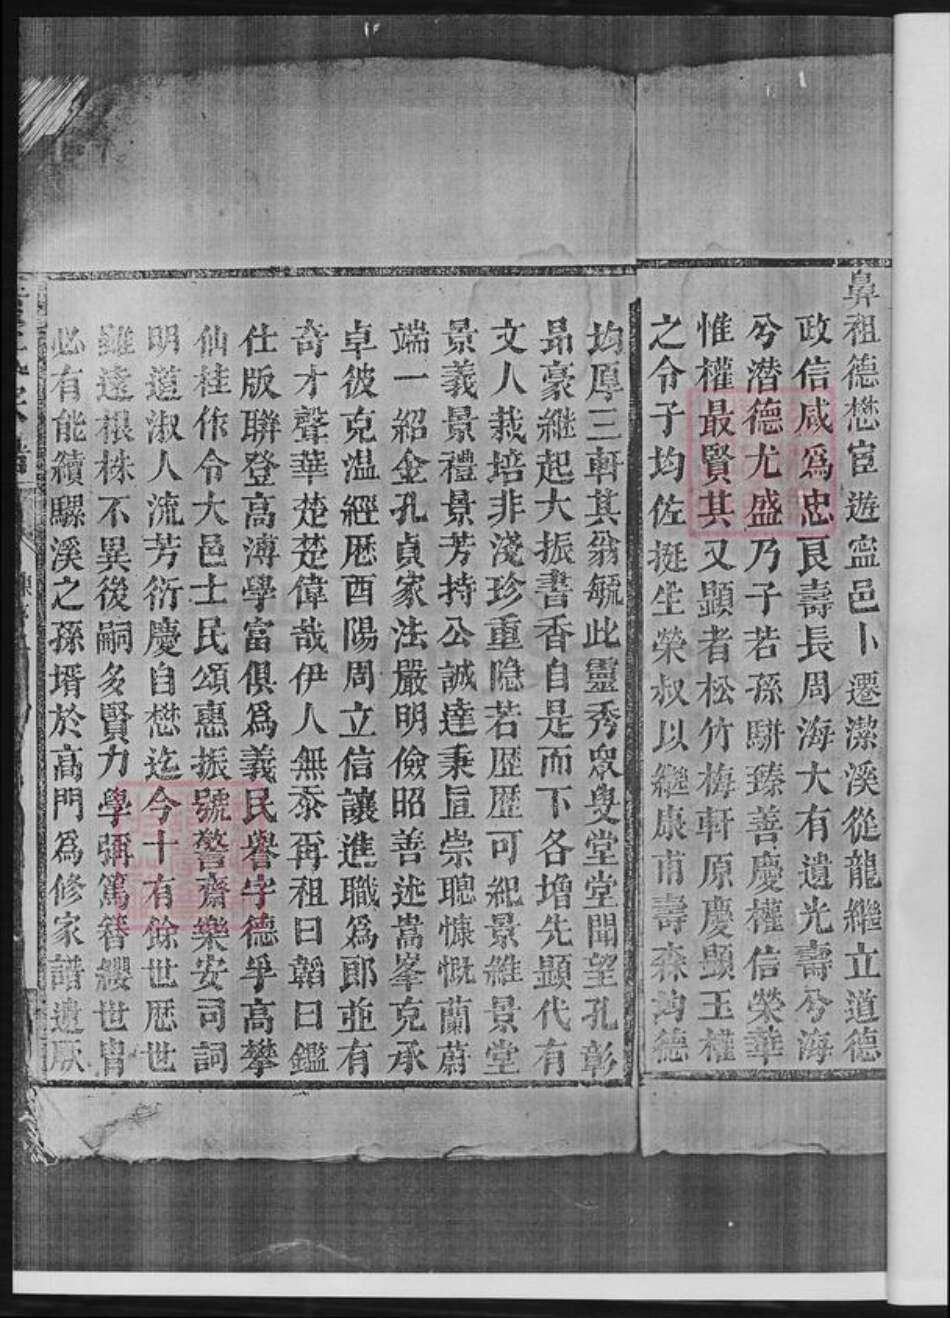 鼻祖德懋宦遊寍邑卜遷潔溪從龍繼立道德
政信咸爲忠良壽長周海大有遺光壽兮海
兮潛德尤盛乃子若孫駢臻善慶權信榮華
惟權最賢其又顯者松竹梅軒原慶顯玉權
之令子均佐挺生榮叔以繼康甫壽森均德
均厚三軒其翁毓此靈秀衆叟堂堂聞望孔彰
昻豪繼起大振書香自是而下各增先顯代有
文人栽培非淺珍重隐若歷歷可紀景維景堂
景義景禮景芳持公誠達秉亘崇聰慷慨蘭蔚
端一紹金孔貞家法嚴明儉昭善述嵩峯克承
卓彼克温經歷酉陽周立信讓進職爲郎並有
奇才聲華楚楚偉哉伊人無忝再祖曰韜曰鑑
仕版聨登高溥學富俱爲義民譽字德孚高攀
仙桂作令大邑士民頌惠振號警齋樂安司詞
明道淑人流芳衍慶自懋迄今十有餘世歷世
雖遠根株不異後嗣多賢力學彌篤簪纓世胄
必有能續騾溪之孫壻於高門爲修家譜遺厥